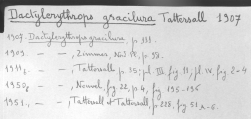 Dactylerythrops gracilura Tattersall 1907
1907. Dactylerythrops gracilura, p.
1909. — — , Zimmer, Nord. Pl., p. 59.
1911. — — , Tattersall p. 35; pl. III, fig. 11, pl. IV, fig. 2-4
1950. — — , Nouvel, fig. 22, p. 4, fig. 195-196
1951. — — , Tattersall et Tattersall, p. 228, fig. 51 A-G.